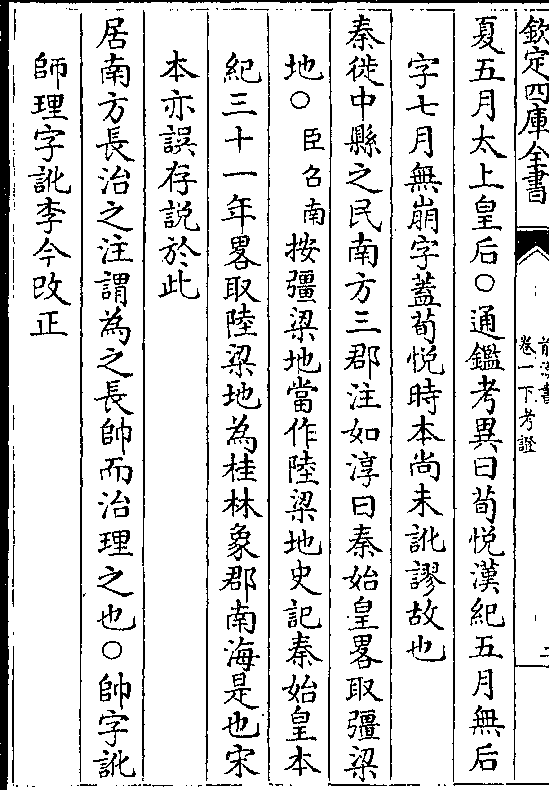 欽定四庫全書
前漢書
卷一下考證
夏五月太上皇后○通鑑考異曰荀悅漢紀五月無后
字七月無崩字蓋荀悅時本尚未訛謬故也
秦徙中縣之民南方三郡注如淳曰秦始皇畧取彊梁
地○臣召南按彊梁地當作陸梁地史記秦始皇本
紀三十一年畧取陸梁地為桂林象郡南海是也宋
本亦誤存説於此
居南方長治之注謂為之長帥而治理之也○帥字訛
師理字訛李今改正